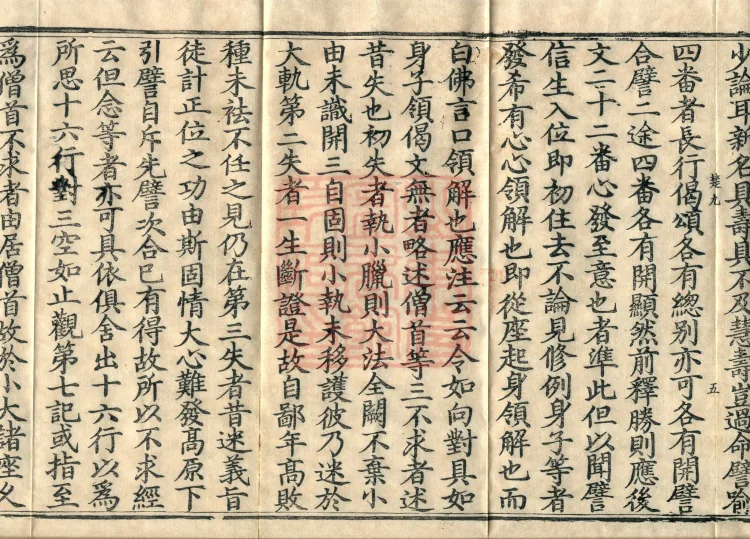 少論耳新名具壽具不及慧壽豈過命譬喻
四番者長行偈頌各有總別亦可各有開譬
合譬二途四番各有開顯然前釋勝則應後
文二十二番心發至意也者準此但以聞譬
信生入位即初住去不論見修例身子等者
發希有心心領解也即從座起身領解也而
白佛言口領解也應注云云令如向對具如
身子領偈文無者略述僧首等三不求者述
昔失也初失者執小臘則大法全闕不棄小
由未識開三自固則小執未移護彼乃迷於
大軌第二失者一生斷證是故自鄙年高敗
種未袪不任之見仍在第三失者昔迷義旨
徒計正位之功由斯固情大心難發高原下
引譬自斥先譬次合已有得故所以不求經
云但念等者亦可具依俱舍出十六行以為
所思十六行對三空如止觀第七記或指至
為僧首不求者由居僧首故於小大諸座久
楚九
五